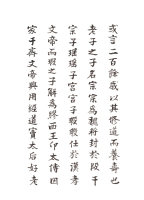 或言二百餘歲以其修道而養壽也
老子之子名宗宗為魏將封於段干
宗子瑤瑤子宮宮子瑕瑕仕於漢孝
文帝而瑕之子解為膠西王印太傅因
家于齊文帝與用經道竇太后好老